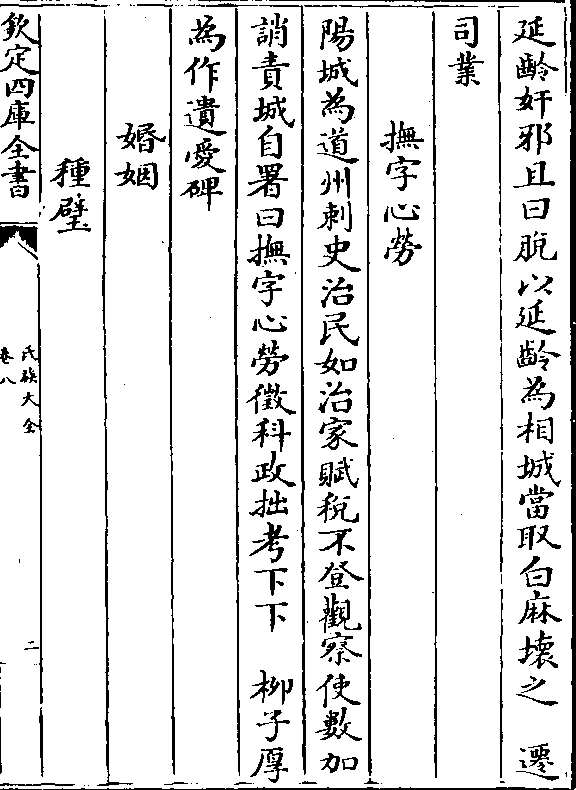 延齡奸邪且曰脫以延齡為相城當取白麻壞之　遷
司業
撫字心勞
陽城為道州刺史治民如治家賦稅不登觀察使數加
誚責城自署曰撫字心勞徵科政拙考下下　柳子厚
為作遺愛碑
婚姻
種璧
欽定四庫全書
氏族大全
卷八
二